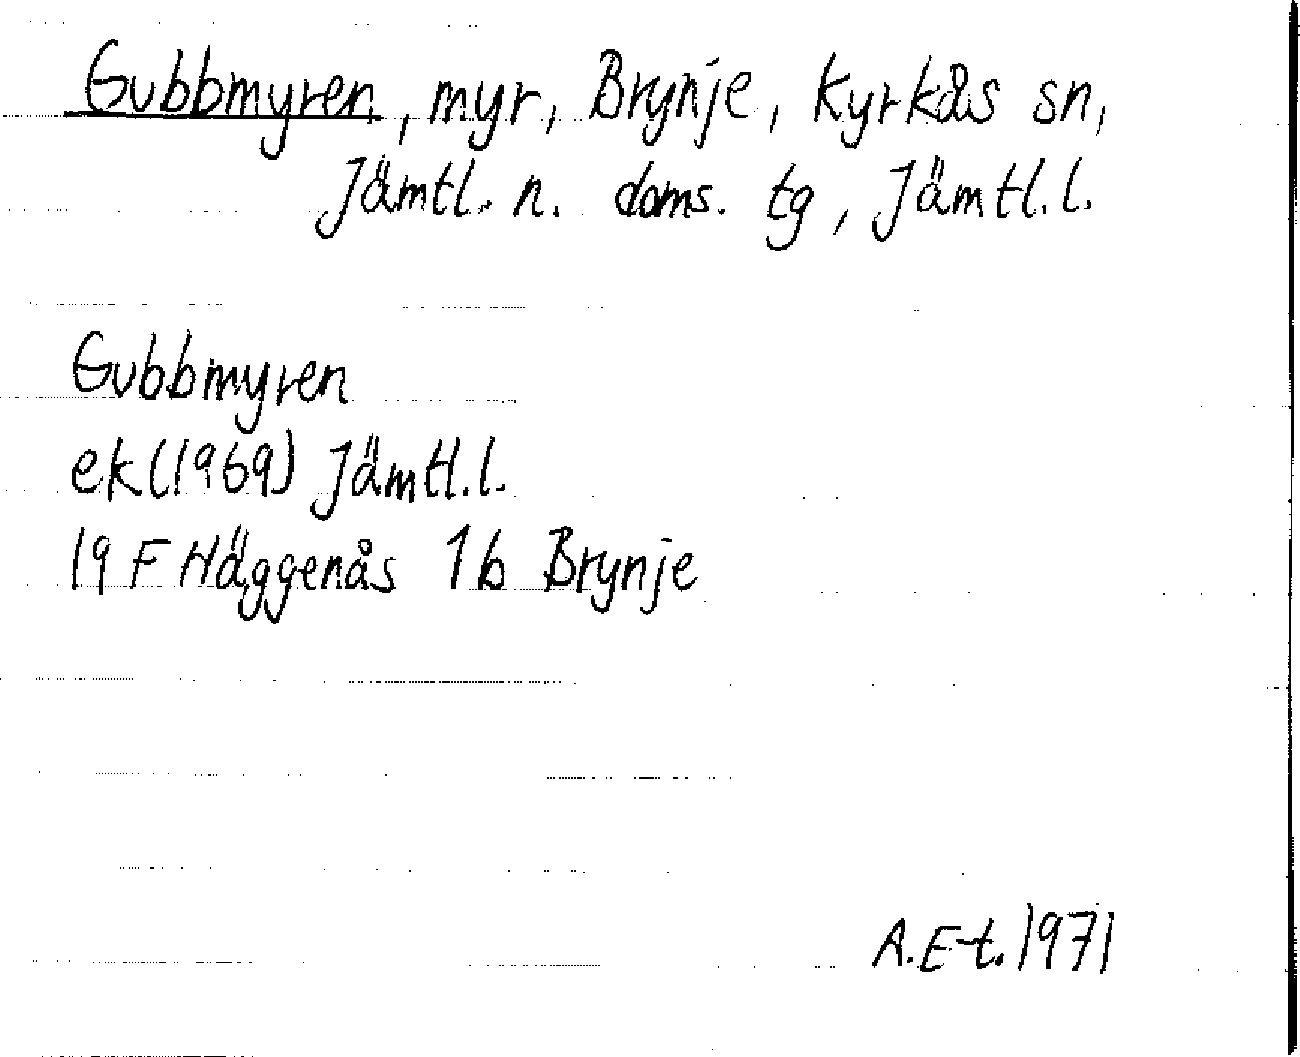 Gubbmyren, myr, Brynje, Kyrkås sn,
Jämtl. n. doms. tg, Jämtl.l.
Gubbmyren
ek(1969) Jämtl.l.
19 F Häggenås 1b Brynje
A.E-t. 1971